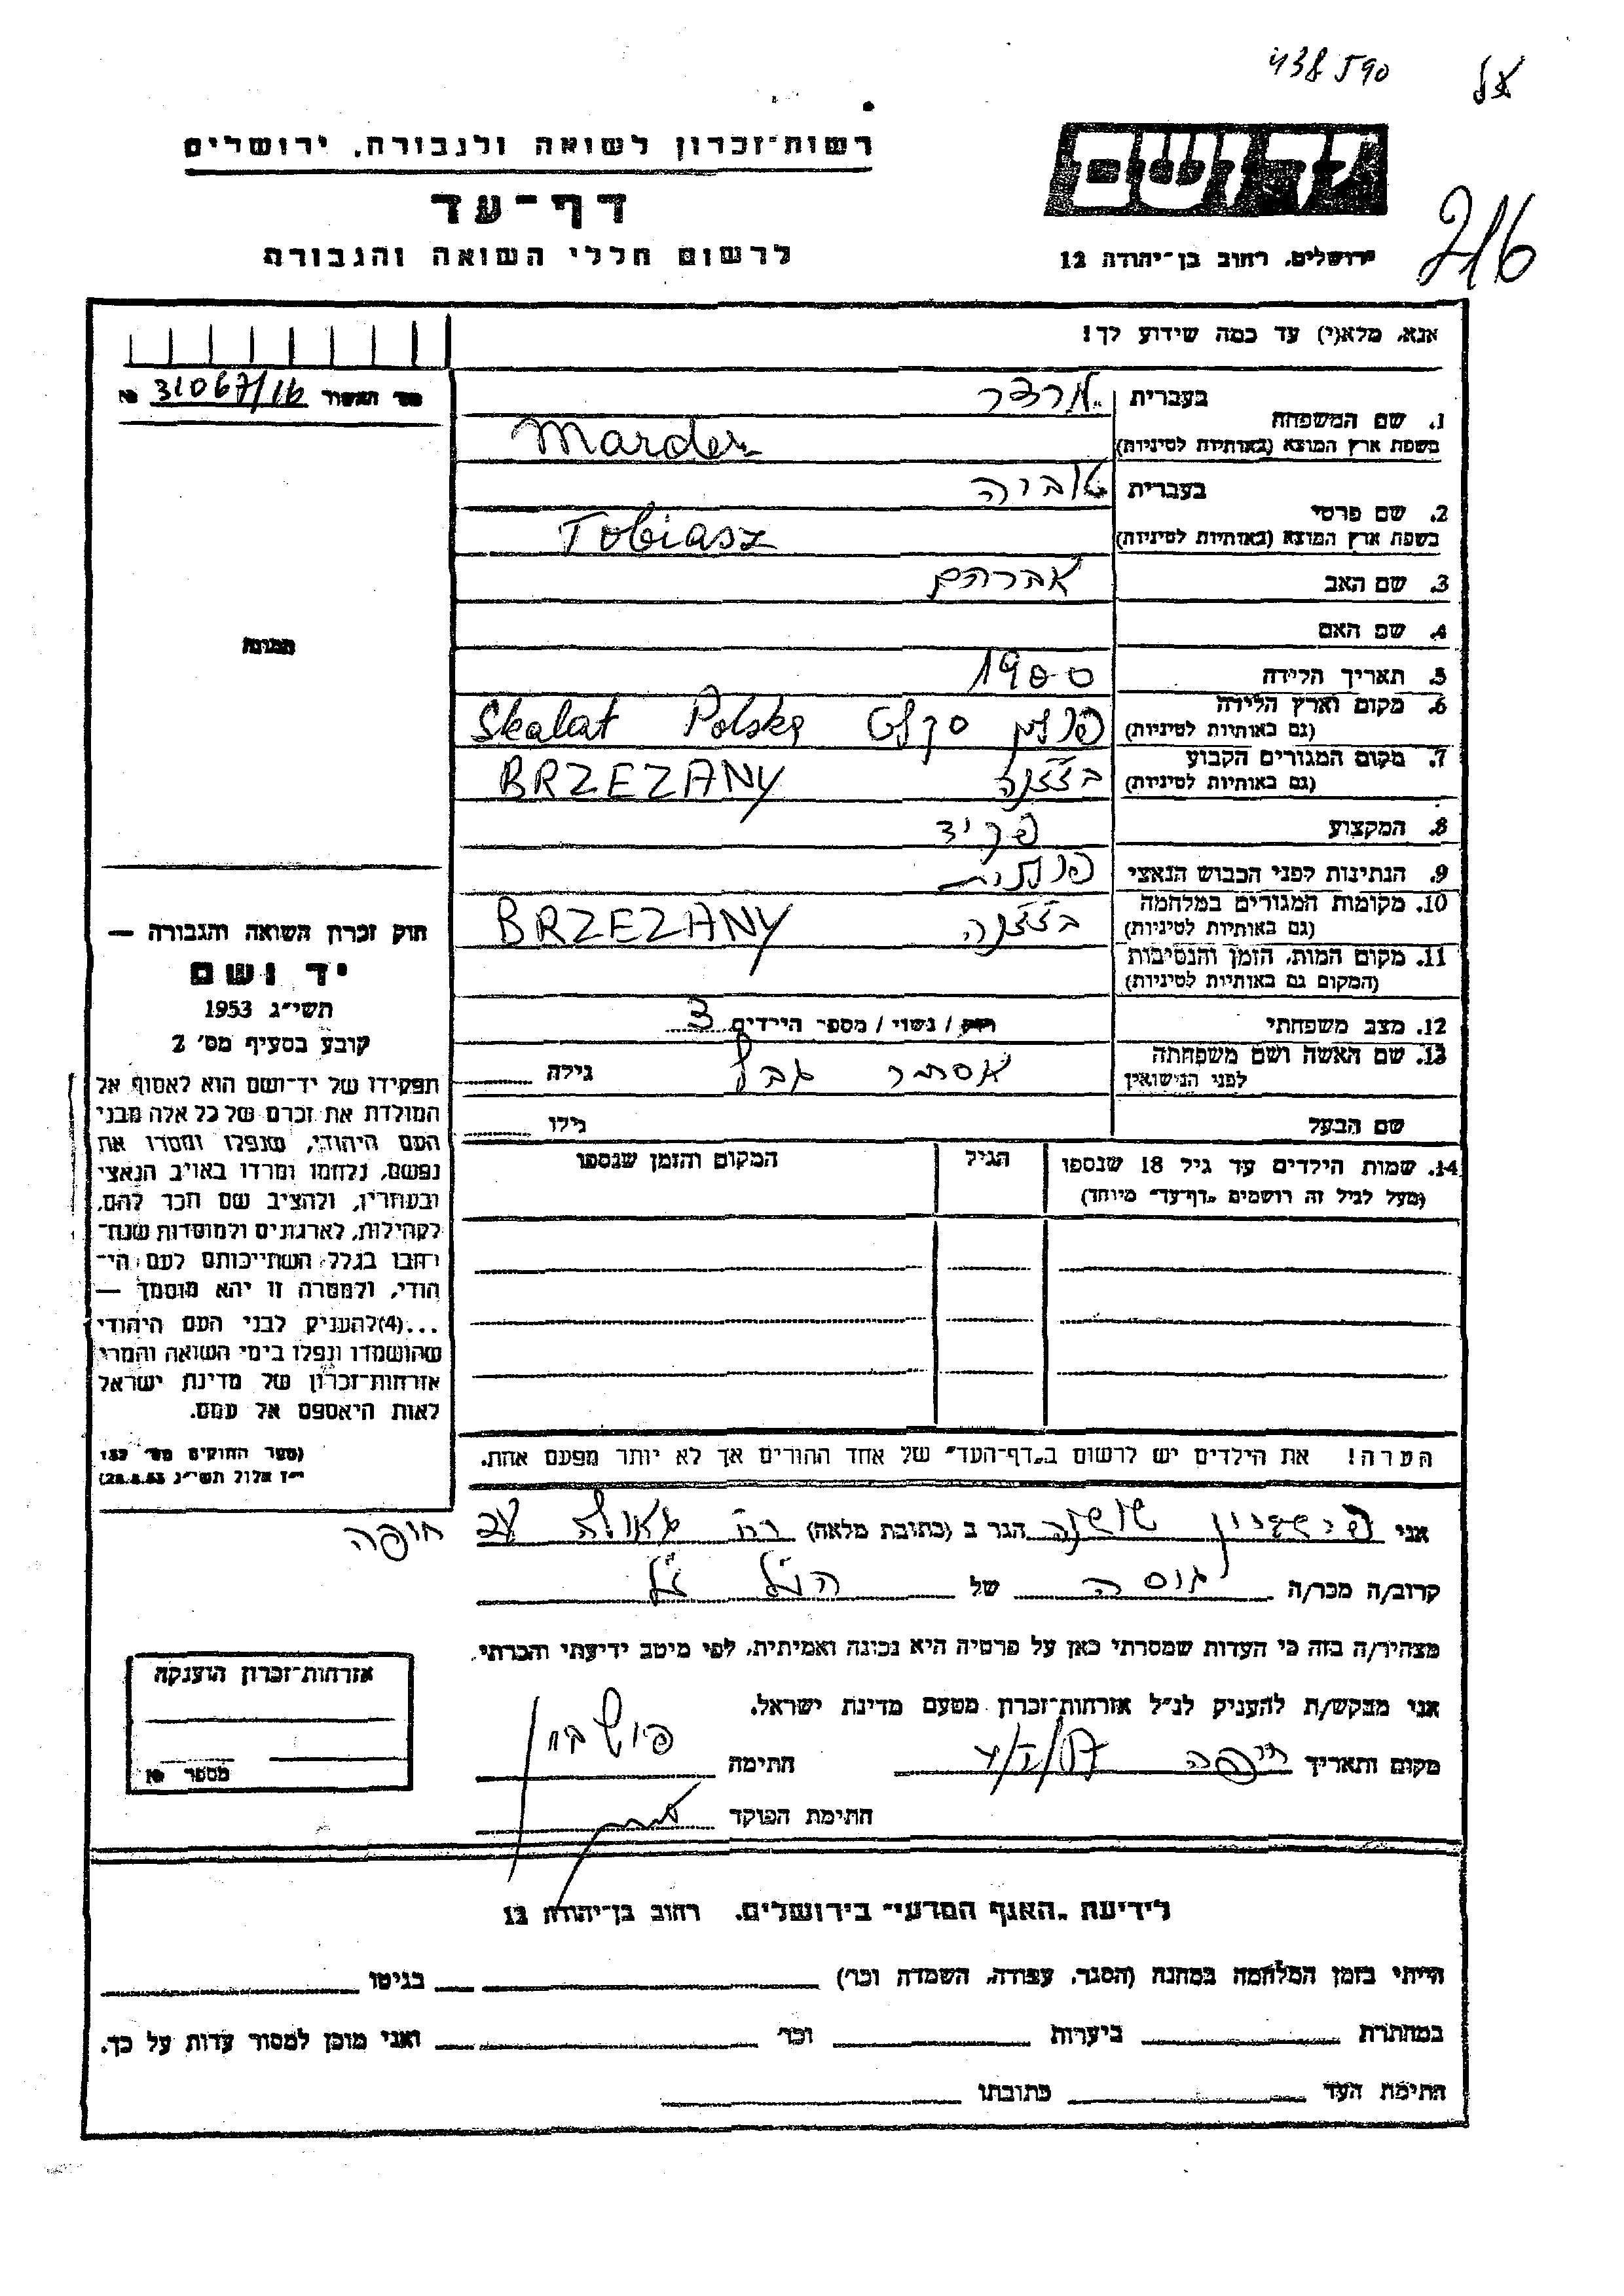 438590
רשות־זכרון לשואה ולגבורה, ירושלים
דף־עד
לרשום חללי השואה והגבורה
יד ושם
ירושלים, רחוב בן־יהודה 12
216
אנא, מלא(י) עד כמה שידוע לך!
מס׳ האשור 31067/16 №
1. שם המשפחה
בעברית מרדר
בשפת ארץ המוצא (באותיות לטיניות) Marder
2. שם פרטי
בעברית טוביה
בשפת ארץ המוצא (באותיות לטיניות) Tobiasz
3. שם האב אברהם
4. שם האם
5. תאריך הלידה 1900
6. מקום וארץ הלידה
(גם באותיות לטיניות) פולין סקלט Skalat Polska
7. מקום המגורים הקבוע
(גם באותיות לטיניות) בז׳ז׳נה BRZEZANY
8. המקצוע פקיד
9. הנתינות לפני הכבוש הנאצי פולנית
10. מקומות המגורים במלחמה
(גם באותיות לטיניות) בז׳ז׳נה BRZEZANY
11. מקום המות, הזמן והנסיבות
(המקום גם באותיות לטיניות)
12. מצב משפחתי רווק / נשוי / מספר הילדים 3
13. שם האשה ושם משפחתה
לפני הנישואין אסתר גבל גילה
שם הבעל גילו
14. שמות הילדים עד גיל 18 שנספו
(מעל לגיל זה רושמים „דף־עד״ מיוחד)
הגיל
המקום והזמן שנספו
הערה! את הילדים יש לרשום ב„דף־העד״ של אחד ההורים אך לא יותר מפעם אחת.
תמונה
חוק זכרון השואה והגבורה —
יד ושם
תשי״ג 1953
קובע בסעיף מס׳ 2
תפקידו של יד־ושם הוא לאסוף אל
המולדת את זכרם של כל אלה מבני
העם היהודי, שנפלו ומסרו את
נפשם, נלחמו ומרדו באויב הנאצי
ובעוזריו, ולהציב שם וזכר להם,
לקהילות, לארגונים ולמוסדות שנח־
רבו בגלל השתייכותם לעם הי־
הודי, ולמטרה זו יהא מוסמך —
...(4)להעניק לבני העם היהודי
שהושמדו ונפלו בימי השואה והמרי
אזרחות־זכרון של מדינת ישראל
לאות היאספם אל עמם.
(ספר החוקים מס׳ 132
י״ז אלול תשי״ג 28.8.53)
אני שושנה הגר ב (כתובת מלאה) רח׳ גאולה
חיפה
קרוב/ה מכר/ה גיסה של הנ״ל
מצהיר/ה בזה כי העדות שמסרתי כאן על פרטיה היא נכונה ואמיתית, לפי מיטב ידיעתי והכרתי.
אני מבקש/ת להעניק לנ״ל אזרחות־זכרון מטעם מדינת ישראל.
מקום ותאריך חיפה חתימה
חתימת הפוקד
אזרחות־זכרון הוענקה
מספר №
לידיעת „האגף המדעי״ בירושלים, רחוב בן־יהודה 12
הייתי בזמן המלחמה במחנה (הסגר, עבודה, השמדה וכו׳) בגיטו
במחתרת ביערות וכו׳ ואני מוכן למסור עדות על כך.
חתימת העד כתובתו